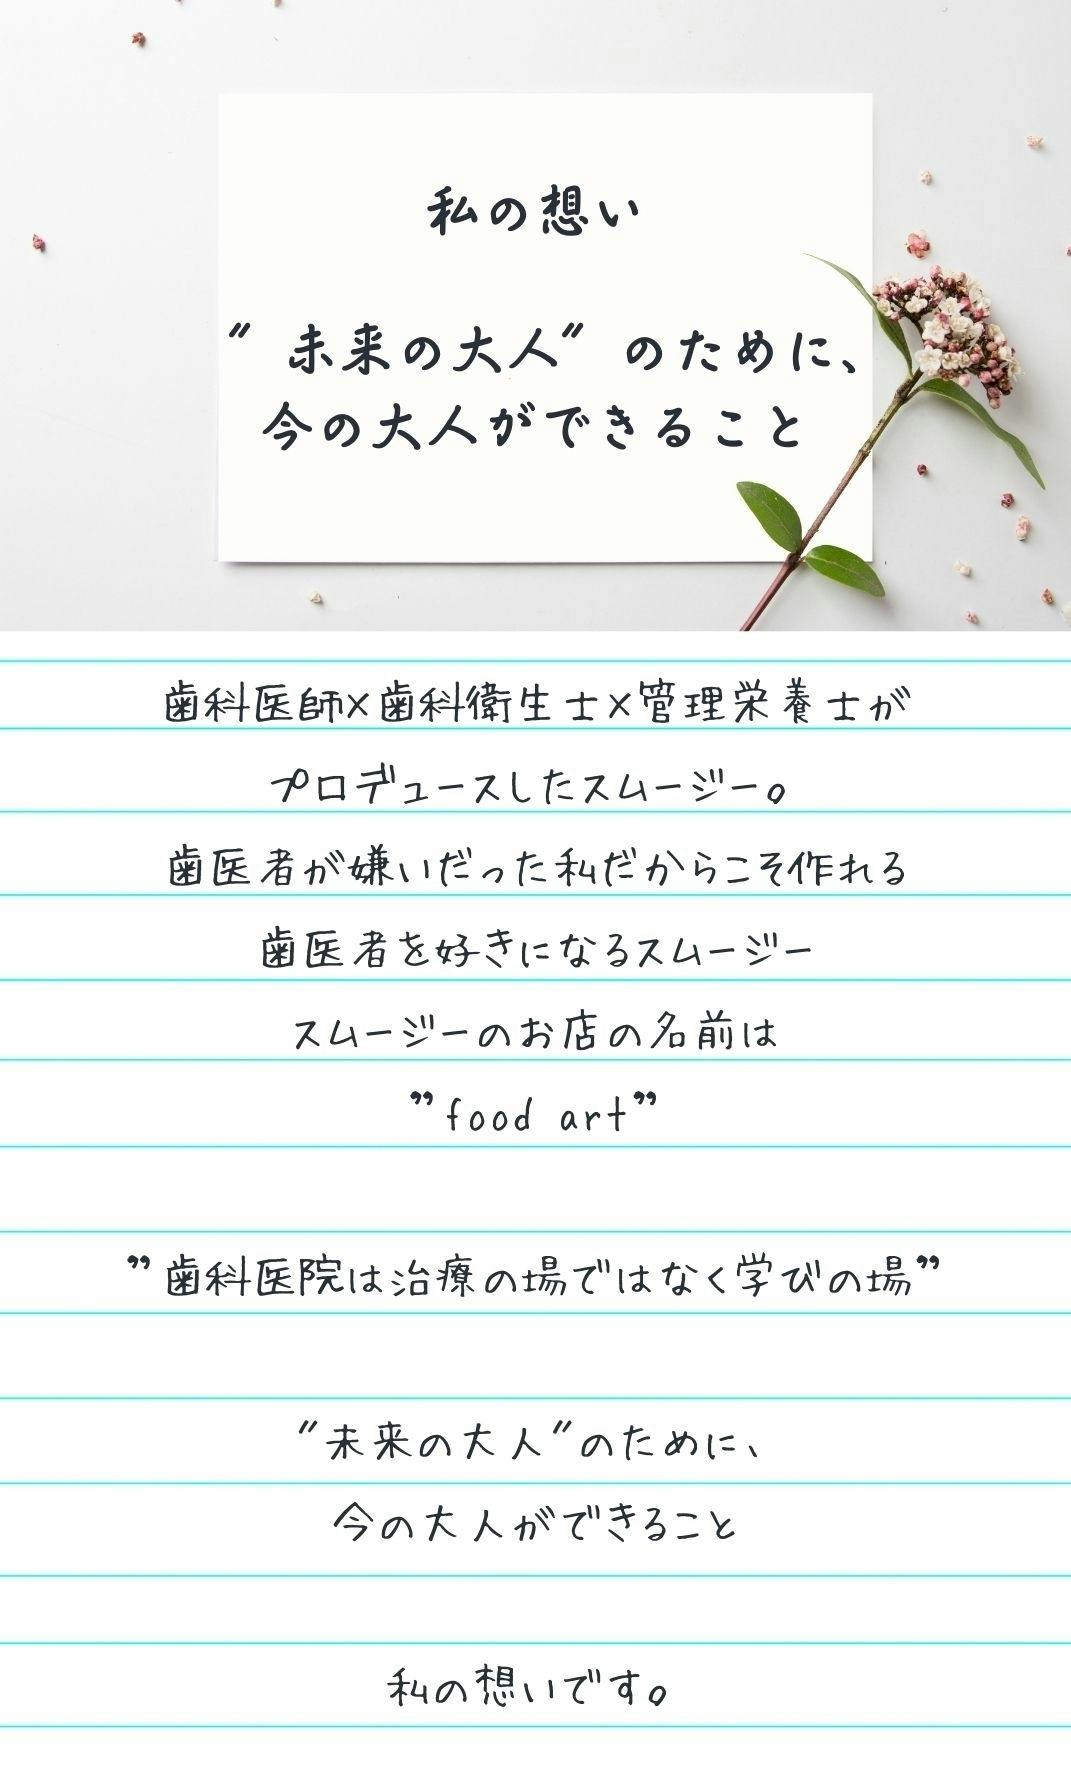 私の想い
〃未来の大人〃のために、
今の大人ができること
歯科医師×歯科衛生士×管理栄養士が
プロデュースしたスムージー。
歯医者が嫌いだった私だからこそ作れる
歯医者を好きになるスムージー
スムージーのお店の名前は
”food art”
”歯科医院は治療の場ではなく学びの場”
〃未来の大人〃のために、
今の大人ができること
私の想いです。